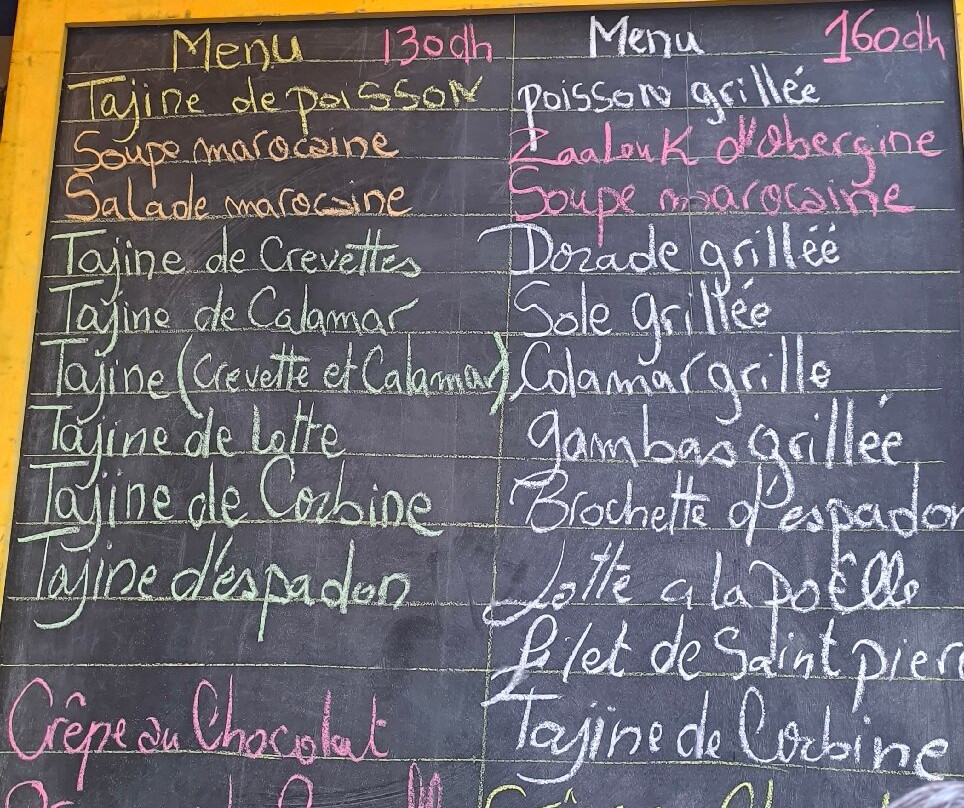 Menu 130dh
Tajine de poisson
Soupe marocaine
Salade marocaine
Tajine de Crevettes
Tajine de Calamar
Tajine (Crevette et Calamar)
Tajine de Lotte
Tajine de Corbine
Tajine d'espadon
Crêpe au Chocolat
Menu 160dh
poisson grillée
Zaalouk d'Obergine
Soupe marocaine
Dorade grilléé
Sole grillée
Calamar grille
gambas grillée
Brochette d'espadon
Lotte a la poÊlle
Filet de Saint pier
Tajine de Corbine